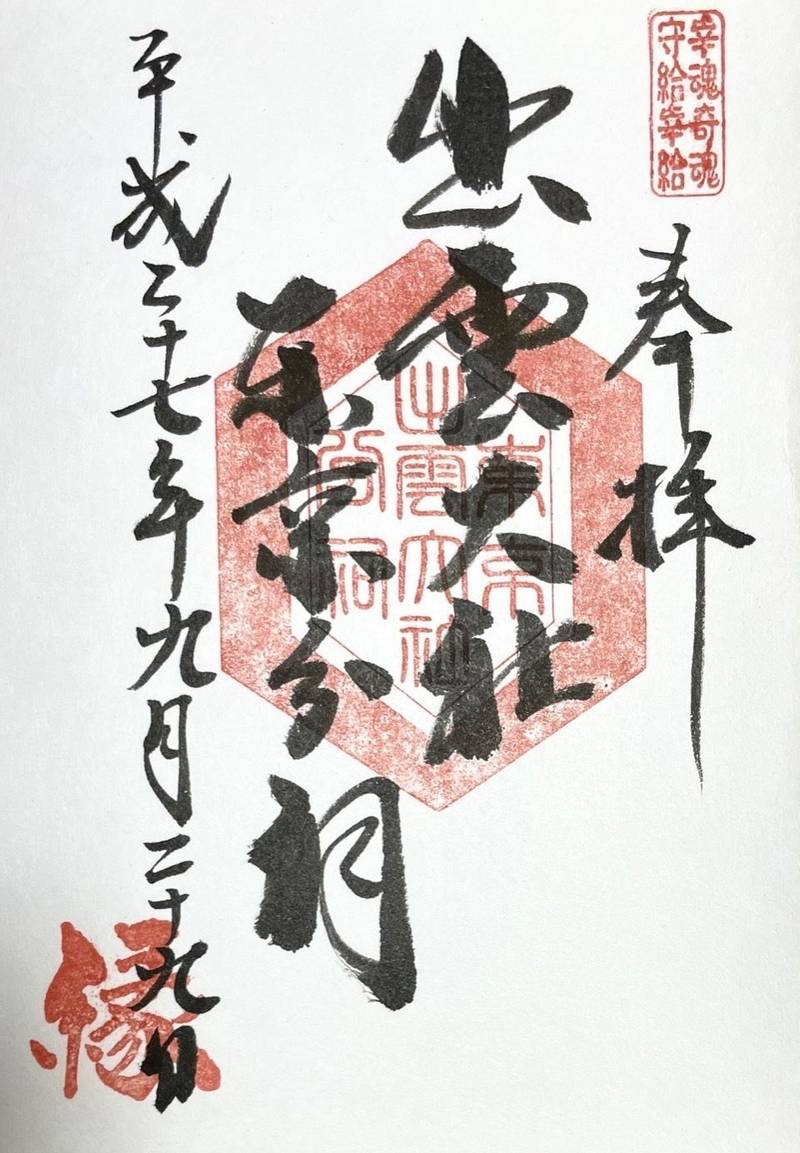 幸魂奇魂
守給幸給
奉拝
出雲大社
東京分祠
東京
出雲大社
分祠
平成二十七年九月二十九日
縁